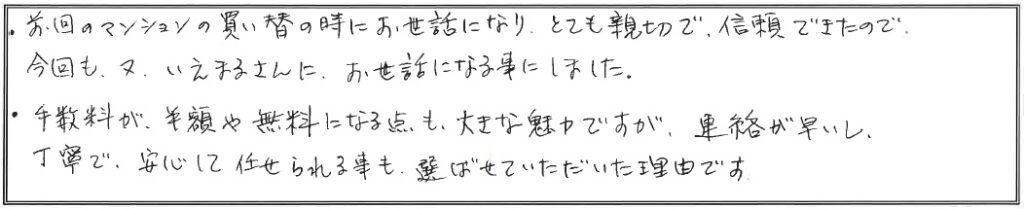 ・前回のマンションの買い替の時にお世話になり、とても親切で、信頼できたので、
今回も、又、いえまるさんに、お世話になる事にしました。
・手数料が、半額や無料になる点も、大きな魅力ですが、連絡が早いし、
丁寧で、安心して任せられる事も、選ばせていただいた理由です